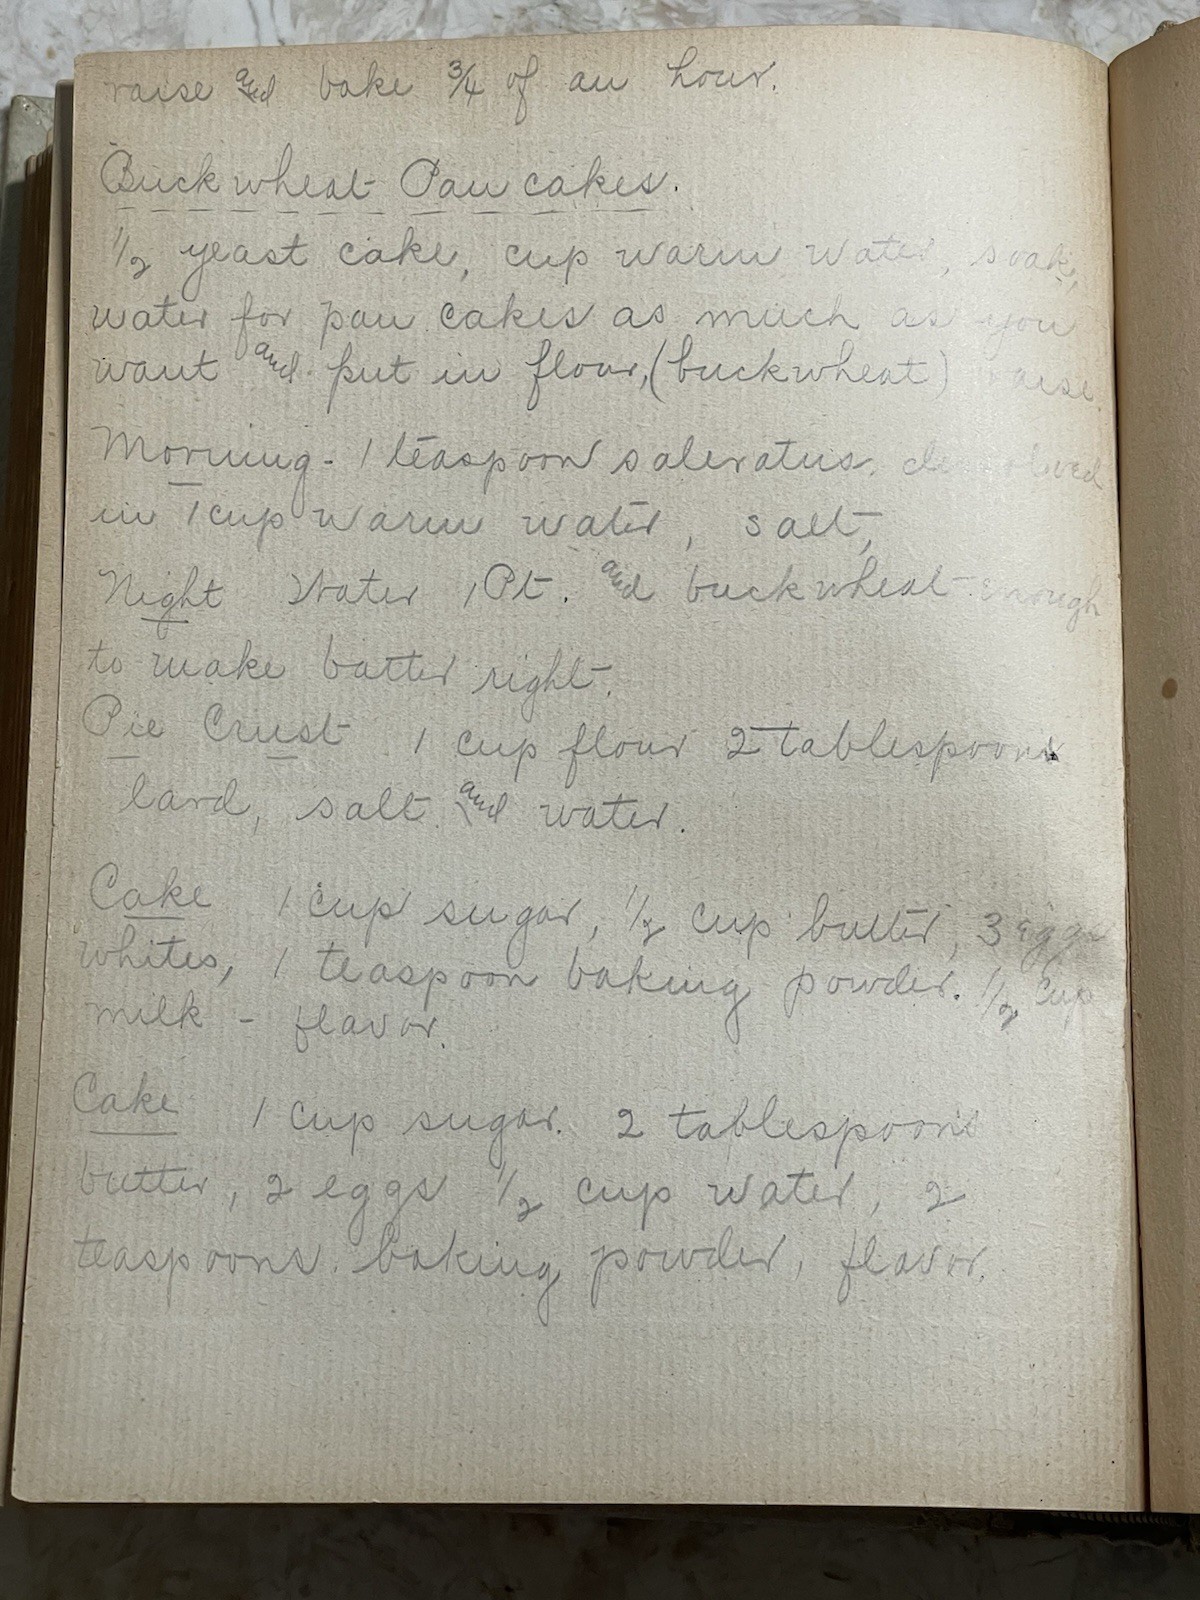 raise and bake 3/4 of an hour.
Buckwheat Pan cakes.
1/2 yeast cake, cup warm water, soak,
water for pan cakes as much as you
want and put in flour, (buckwheat) raise.
Morning - 1 teaspoon saleratus, dissolved
in 1 cup warm water, salt,
Night Water 1 Pt. and buckwheat enough
to make batter right.
Pie Crust 1 cup flour 2 tablespoons
lard, salt and water.
Cake 1 cup sugar, 1/2 cup butter, 3 eggs
whites, 1 teaspoon baking powder. 1/2 cup
milk - flavor.
Cake 1 cup sugar. 2 tablespoons
butter, 2 eggs 1/2 cup water, 2
teaspoons baking powder, flavor.